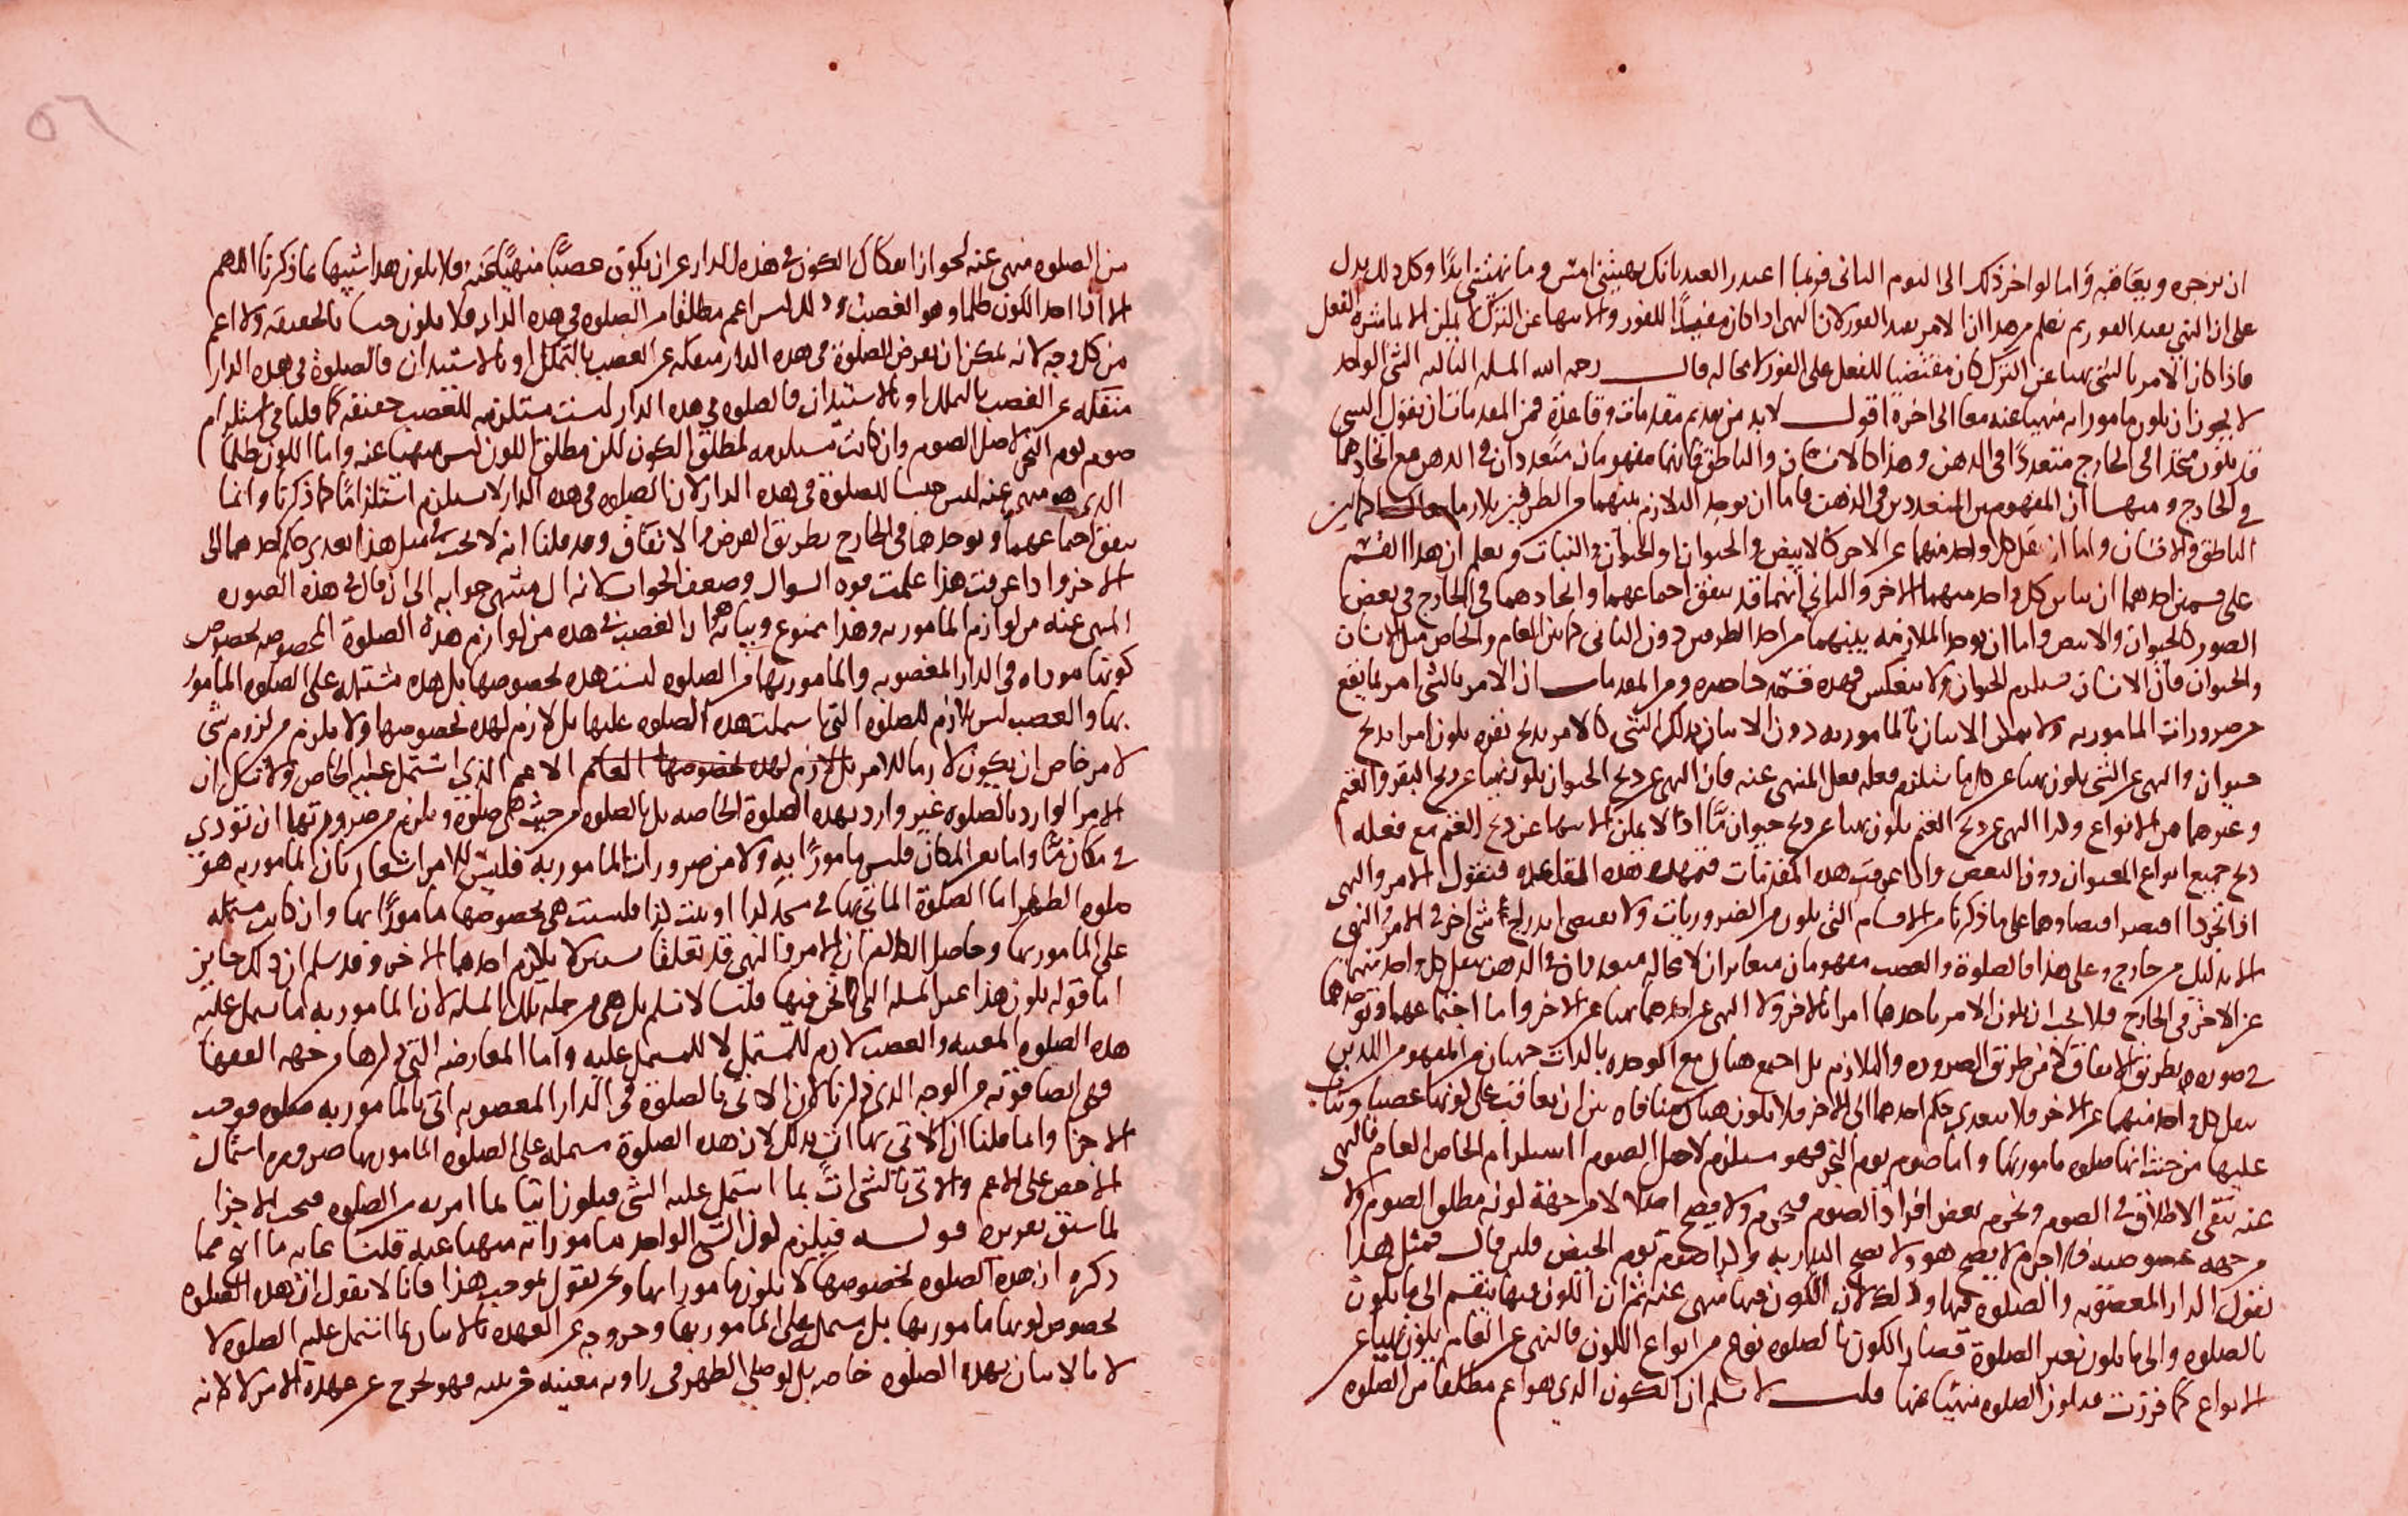 ان يزجره ويعاقبه واما لو اخر ذلك الى اليوم الثاني فربما اعتذر العبد بانك نهيتني امس وما نهيتني ابدا وكل ذلك يدل
على ان النهي يفيد الفور ثم نعلم من هذا ان الامر يفيد الفور لان النهي اذا كان مفيدا للفور والانتهاء عن الترك لا يمكن الا بمباشرة الفعل
فاذا كان الامر بالشي نهيا عن الترك كان مقتضيا للفعل على الفور لا محاله قال رحمه الله المسله الثالثه الشي الواحد
لا يجوز ان يكون مامورا به منهيا عنه معا الى اخره اقول لابد من تقديم مقدمات وقاعدة فمن المقدمات ان نقول الشي
قد يكون متحدا في الخارج متعددا في الذهن وهذا كالانسان والناطق فانهما مفهومان متعددان في الذهن مع اتحادهما
في الخارج ومنها ان المفهومين المتعددين في الذهن فاما ان يوجد التلازم بينهما من الطرفين
الناطق والانسان واما ان ينفك كل واحد منهما عن الاخر كالابيض والحيوان او الحيوان والنبات ويعلم ان هذا القسم
على قسمين احدهما ان يباين كل واحد منهما الاخر والثاني انهما قد يتفق اجتماعهما واتحادهما في الخارج في بعض
الصور كالحيوان والابيض واما ان يوجد الملازمه بينهما من احد الطرفين دون الثاني كما بين العام والخاص مثل الانسان
والحيوان فان الانسان يستلزم الحيوان ولا ينعكس فهذه قسمه حاصره ومن المقدمات ان الامر بالشي امر بما يقع
من ضرورات المامور به ولا يمكن الاتيان بالمامور به دون الاتيان بذلك الشي كالامر بذبح بقره يكون امرا بذبح
حيوان والنهي عن الشي يكون نهيا عن كل ما يستلزم فعله فعل المنهي عنه فان النهي عن ذبح الحيوان يكون نهيا عن ذبح البقر والغنم
وغيرهما من الانواع ولذا النهي عن ذبح الغنم يكون نهيا عن ذبح حيوان ما اذ لا يمكن الانتهاء عن ذبح الغنم مع فعله
ذبح جميع انواع الحيوان دون البعض واذا عرفت هذه المقدمات فنمهد هذه القاعده فنقول الامر والنهي
اذا تجردا اقتصر اقتضاوهما على ما ذكرنا من الاقسام التي يكون من الضروريات ولا يقتضي اندراج شي اخر في الامر والنهي
الا بدليل من خارج وعلى هذا فالصلوة والغصب مفهومان متغايران لا محاله متعددان في الذهن ينفك كل واحد منهما
عن الاخر في الخارج فلا يجب ان يكون الامر باحدهما امرا بالاخر ولا النهي عن احدهما نهيا عن الاخر واما اجتماعهما وتوحدهما
في صوره بطريق الاتفاق لا من طريق الضروره والتلازم بل اجتمع هناك مع الوحده بالذات جهتان من المفهومين اللذين
ينفك كل واحد منهما عن الاخر فلا يتعدى حكم احدهما الى الاخر فلا يكون هناك منافاه بين ان يعاقب على كونها غصبا ويثاب
عليها من حيث انها صلوه مامور بها واما صوم يوم النحر فهو مستلزم لاصل الصوم استلزام الخاص العام فالنهي
عنه ينفي الاطلاق في الصوم وتحريم بعض افراد الصوم فيحرم ولا يصح اصلا لا من جهة كونه مطلق الصوم ولا
من جهه خصوصيته فاذا حرم لا يصح هو ولا يصح النذر به ولذا صوم يوم الحيض فلئن قال فمثل هذا
نقول الدار المغصوبه والصلوه فيها وذلك لان الكون فيها منهي عنه ثم ان الكون فيها ينقسم الى ما يكون
بالصلوه والى ما يكون بغير الصلوة فصار الكون بالصلوه نوع من انواع الكون فالنهي عن العام يكون نهيا عن
الانواع كما قررت فيكون الصلوه منهيا عنها قلت لا نسلم ان الكون الذي هو اعم مطلقا من الصلوه
من الصلوه منهي عنه لجواز انفكاك الكون في هذه الدار عن ان يكون غصبا منهيا عنه ولا يكون هذا شبيها بما ذكرنا اللهم
الا اذا اخذ الكون ظلما وهو الغصب وذلك ليس اعم مطلقا من الصلوه في هذه الدار فلا يكون جنسا بالحقيقه ولا اعم
من كل وجه لانه يمكن ان نفرض الصلوة في هذه الدار منفكه عن الغصب بالتملك او بالاستيذان فالصلوة في هذه الدار
منفكه عن الغصب بالتملك او بالاستيذان فالصلوه في هذه الدار ليست مستلزمه للغصب حقيقه كما قلنا في استلزام
صوم يوم النحر لاصل الصوم وان كانت مستلزمه لمطلق الكون لكن مطلق الكون ليس منهيا عنه واما الكون ظلما
الذي هو منهي عنه ليس جنسا للصلوة في هذه الدار لان الصلوه في هذه الدار لا تستلزم استلزاما كما ذكرنا وانما
يتفق اجتماعهما وتوحدهما في الخارج بطريق الفرض والاتفاق وقد قلنا انه لا يجب في مثل هذا تعدي حكم احدهما الى
الاخر واذا عرفت هذا علمت قوه السوال وضعف الجواب لانه ال منتهى جوابه الى ان قال في هذه الصوره
المنهي عنه من لوازم المامور به وهذا ممنوع وبيانه هو ان الغصب في هذه من لوازم هذه الصلوة المخصوصه بخصوص
كونها موداه في الدار المغصوبه والمامور بها من الصلوه ليست هذه بخصوصها بل هذه مشتمله على الصلوه المامور
بها والغصب ليس لازم للصلوة التي اشتملت هذه الصلوه عليها بل لازم لهذه بخصوصها ولا يلزم من لزوم شي
لامر خاص ان يكون لازما للامر بل لازم لهذه بخصوصها العام الاعم الذي اشتمل عليه الخاص ولا نشك ان
الامر الوارد بالصلوه غير وارد بهذه الصلوة الخاصه بل بالصلوه من حيث هي صلوة ويلزم من ضرورتها ان تودي
في مكان ما واما نفس المكان فليس مامورا به ولا من ضرورات المامور به فليس للامر اشعار بان المامور به هو
صلوه الظهر اما الصلوة الماتي بها في مسجد كذا او بيت كذا فليست هي بخصوصها مامورا بها وان كانت مشتمله
على المامور بها وحاصل الكلام ان الامر والنهي قد تعلقا بشيئين لا يلازم احدهما الاخر وقد سلم ان ذلك جايز
اما قوله يكون هذا غير المسله التي نحن فيها قلنا لا نسلم بل هي من جمله تلك المسله لان المامور به ما يشتمل عليه
هذه الصلوه المعينه والغصب لازم للمشتمل لا للمشتمل عليه واما المعارضه التي ذكرها من جهه الفقهاء
فهي ايضا قويه من الوجه الذي ذكرنا لان الاتي بالصلوة في الدار المغصوبه اتى بالمامور به فيكون موجب
الاجزا وانما قلنا ان الاتي بها ات بذلك لان هذه الصلوة مشتمله على الصلوه المامور بها ضروره اشتمال
الاخص على الاعم والاتي بالشي ات بما اشتمل عليه الشي فيكون اتيا بما امر به من الصلوه فيجب الاجزا
لما سبق تقريره قوله فيلزم كون الشي الواحد مامورا به منهيا عنه قلنا غايه ما انتج مما
ذكره ان هذه الصلوه بخصوصها لا يكون مامورا بها ونحن نقول بموجب هذا فانا لا نقول ان هذه الصلوه
بخصوص كونها مامور بها بل تشتمل على المامور بها وخروجه عن العهده بالاتيان بما اشتمل عليه الصلوه لا
لا بالاتيان بهذه الصلوه خاصه بل لو صلى الظهر في زاويه معينه من بيته فهو يخرج عن عهدة الامر لا لانه